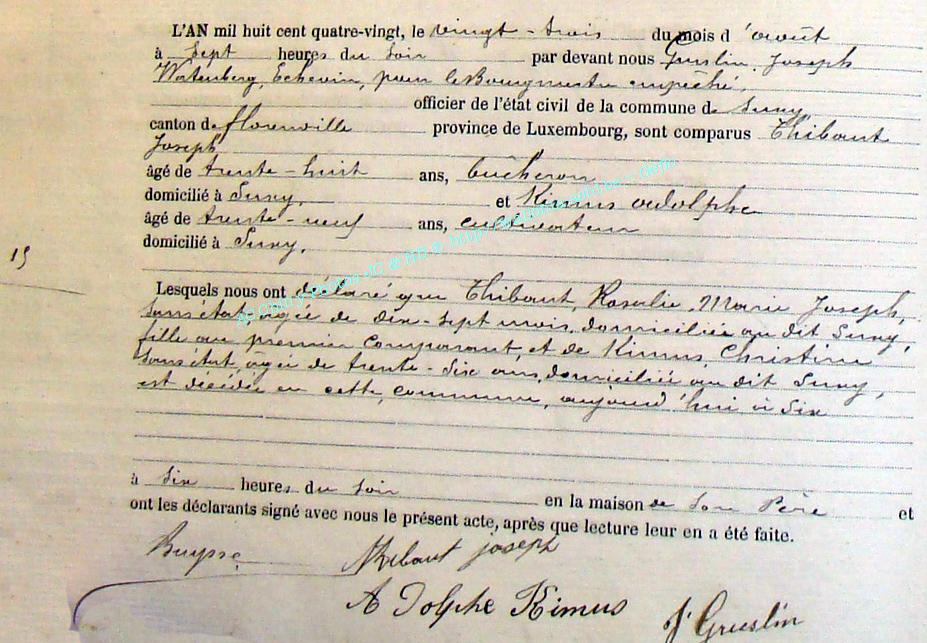 L'AN mil huit cent quatre-vingt, le vingt-trois du mois d'août
à Sept heures du Soir par devant nous Guslin Joseph
Watenberg, Echevin, pour le Bourgmestre empêché,
officier de l'état civil de la commune de Suny
canton de florenville province de Luxembourg, sont comparus Thibaut
Joseph
âgé de trente-huit ans, bûcheron
domicilié à Suny, et Kimus adolphe
âgé de trente-neuf ans, cultivateur
domicilié à Suny,
15
Lesquels nous ont déclaré que Thibaut, Rosalie, Marie Joseph,
sans état, agée de dix-sept mois, domiciliée au dit Suny,
fille au premier Comparant, et de Kimus, Christine
Sans état, agée de trente-Six ans, domiciliée au dit Suny,
est décédée en cette commune, aujourd'hui à Six
à Six heures du Soir en la maison de Son Père et
ont les déclarants signé avec nous le présent acte, après que lecture leur en a été faite.
Buysse Thibaut joseph
Adolphe Kimus J Gueslin